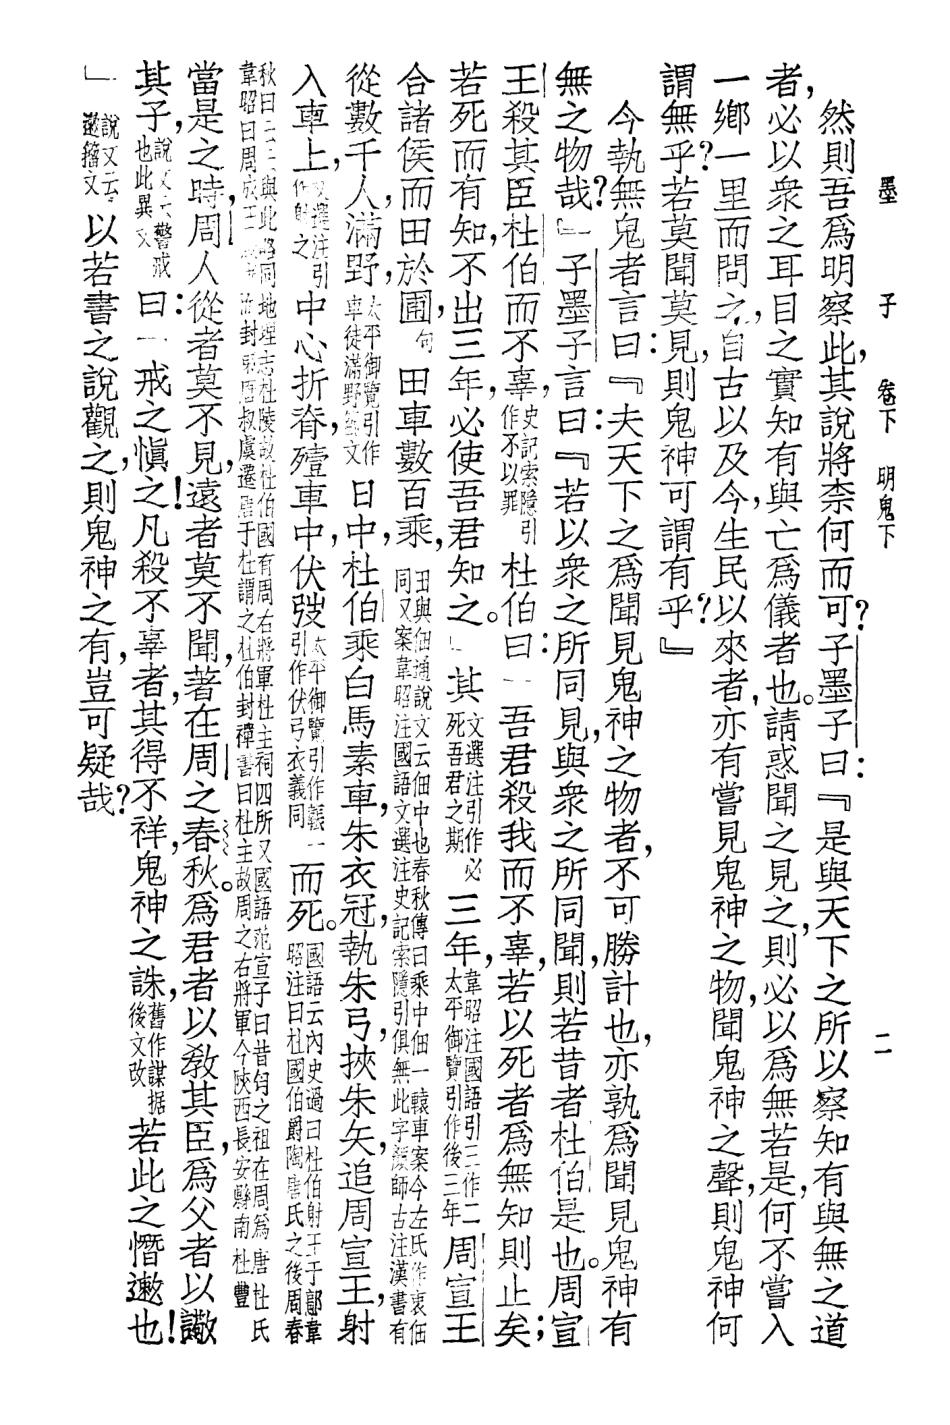 墨子 卷下 明鬼下 二
然則吾爲明察此，其說將柰何而可？子墨子曰：『是與天下之所以察知有與無之道
者，必以衆之耳目之實知有與亡爲儀者也。請惑聞之見之，則必以爲無若是，何不嘗入
一鄉一里而問之，自古以及今，生民以來者，亦有嘗見鬼神之物，聞鬼神之聲，則鬼神何
謂無乎？若莫聞莫見，則鬼神可謂有乎？』
今執無鬼者言曰：『夫天下之爲聞見鬼神之物者，不可勝計也，亦孰爲聞見鬼神有
無之物哉？』子墨子言曰：『若以衆之所同見，與衆之所同聞，則若昔者杜伯是也。周宣
王殺其臣杜伯而不辜，史記索隱引作不以罪杜伯曰：吾君殺我而不辜，若以死者爲無知則止矣；
若死而有知，不出三年，必使吾君知之。」其文選注引作必死吾君之期三年，韋昭注國語引三作二太平御覽引作後三年周宣王
合諸侯而田於圃，句田車數百乘，田與佃通說文云佃中也春秋傳曰乘中佃一轅車案今左氏作衷佃同又案韋昭注國語文選注史記索隱引俱無此字顏師古注漢書有
從數千，人滿野，太平御覽引作車徒滿野日中，杜伯乘白馬素車，朱衣冠，執朱弓，挾朱矢，追周宣王，射
入車上，文選注引作射之中心折脊，殪車中，伏弢太平御覽引作引作伏弓衣義同而死。國語云內史過曰杜伯射王于鄗韋昭注曰杜國伯爵陶唐氏之後周春
秋曰與此略同地理志杜陵故杜伯國有周右將軍杜主祠四所又國語范宣子曰昔匄之祖在周爲唐杜氏韋昭曰周成王封唐叔虞遷唐于杜謂之杜伯封禪書曰杜主故周之右將軍今陝西長安縣南杜豐
當是之時，周人從者莫不見！遠者莫不聞，著在周之春秋。爲君者以敎其臣，爲父者以䜘
其子，說文云警戒也此異文曰：戒之慎之，凡殺不辜者，其得不祥，鬼神之誅，舊作謀据後文改若此之憯遬也！
」說文云遬籀文以若書之說觀之，則鬼神之有，豈可疑哉？